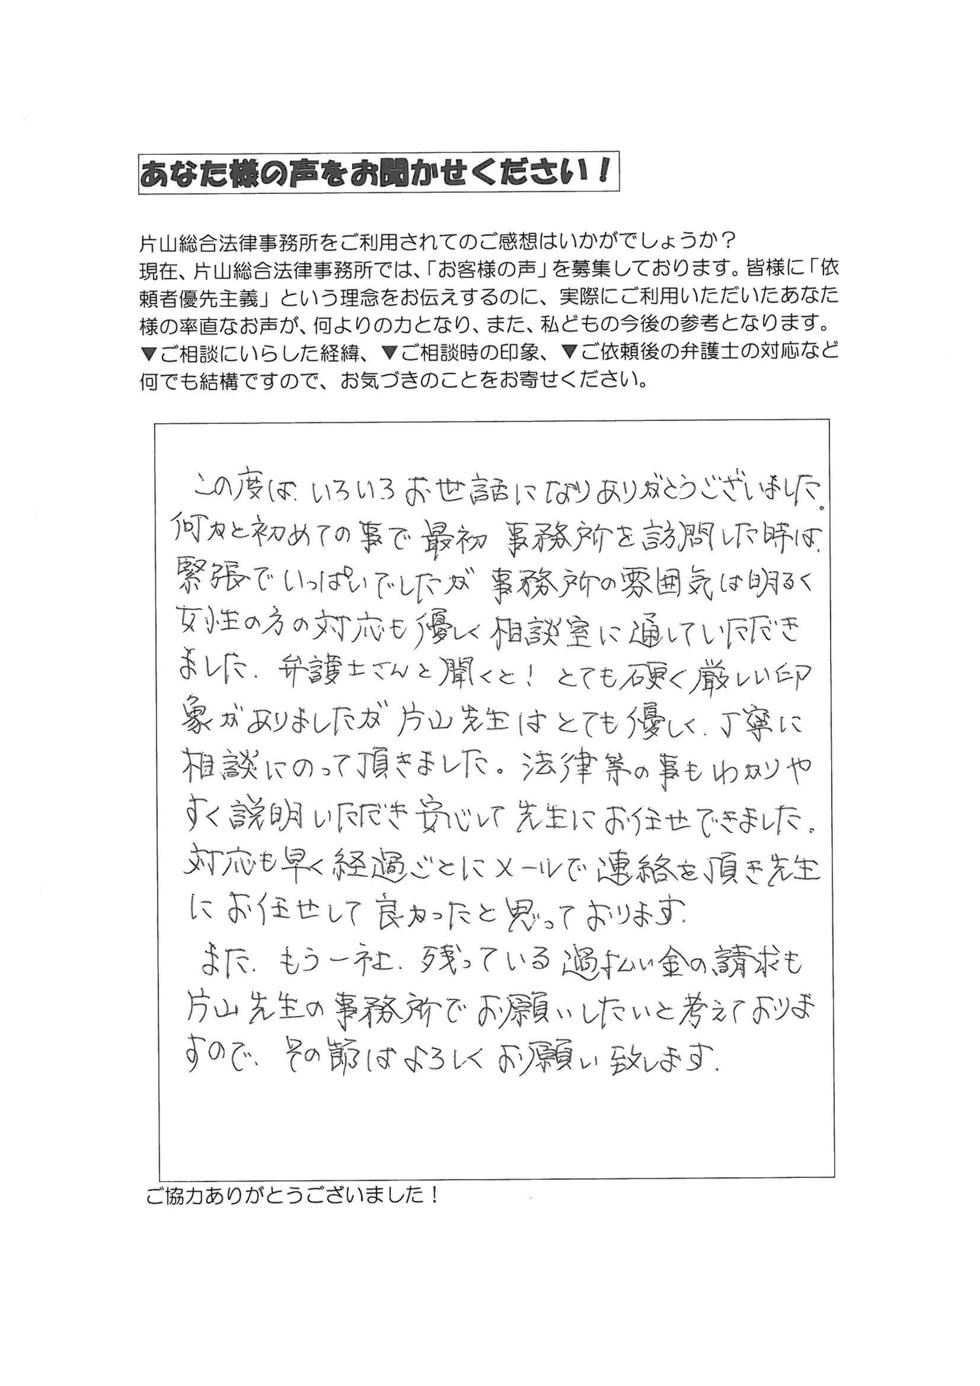 あなた様の声をお聞かせください！
片山総合法律事務所をご利用されてのご感想はいかがでしょうか？
現在、片山総合法律事務所では、「お客様の声」を募集しております。皆様に「依
頼者優先主義」という理念をお伝えするのに、実際にご利用いただいたあなた
様の率直なお声が、何よりの力となり、また、私どもの今後の参考となります。
▼ご相談にいらした経緯、▼ご相談時の印象、▼ご依頼後の弁護士の対応など
何でも結構ですので、お気づきのことをお寄せください。
この度は、いろいろお世話になりありがとうございました。
何かと初めての事で最初 事務所を訪問した時は、
緊張でいっぱいでしたが 事務所の雰囲気は明るく
女性の方の対応も優しく相談室に通していただき
ました。弁護士さんと聞くと！とても硬く厳しい印
象がありましたが片山先生はとても優しく、丁寧に
相談にのって頂きました。法律等の事もわかりや
すく説明いただき安心して先生にお任せできました。
対応も早く経過ごとにメールで連絡を頂き先生
にお任せして良かったと思っております。
また、もう一社、残っている過払い金の請求も
片山先生の事務所でお願いしたいと考えておりま
すので、その節はよろしくお願い致します。
ご協力ありがとうございました！